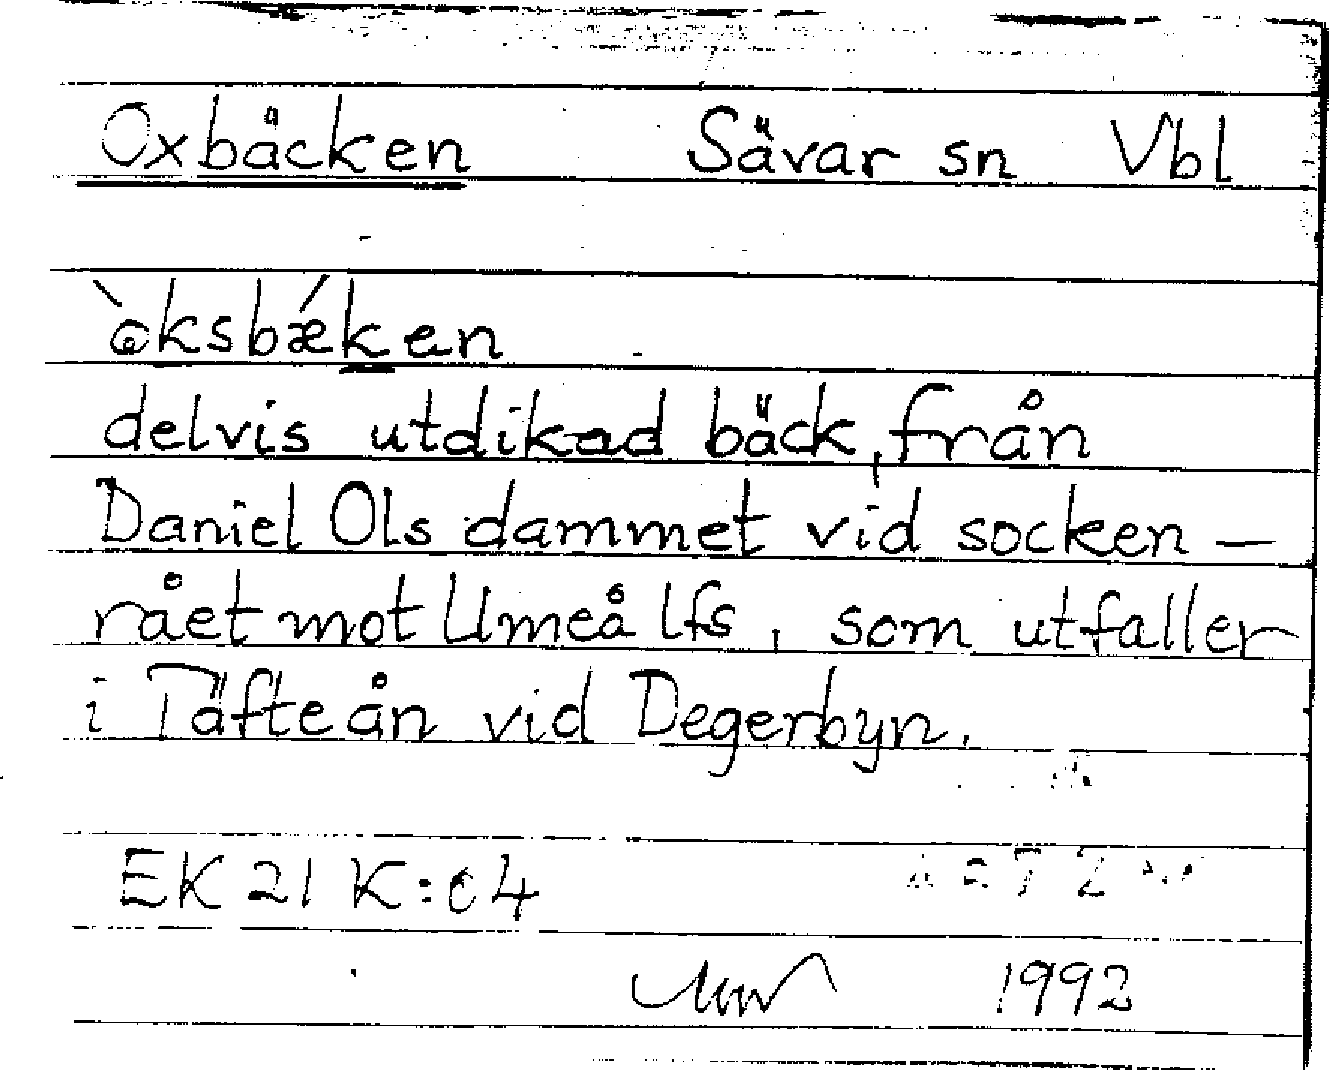 Oxbäcken Sävar sn Vbl
òksbǽken
delvis utdikad bäck, från
Daniel Ols dammet vid socken –
rået mot Umeå lfs, som utfaller
i Täfteån vid Degerbyn.
EK 21 K:c4
1992